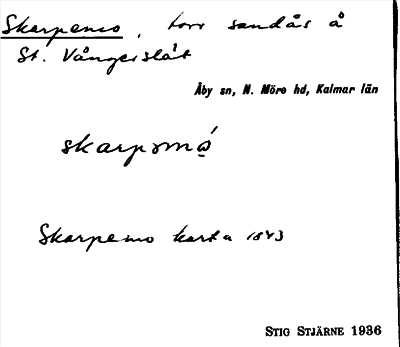 Skarpemo, torr sandås å
St. Vångerslät
Åby sn, N. Möre hd, Kalmar län
skarpəmó̱
Skarpemo karta 1843
STIG STJÄRNE 1936